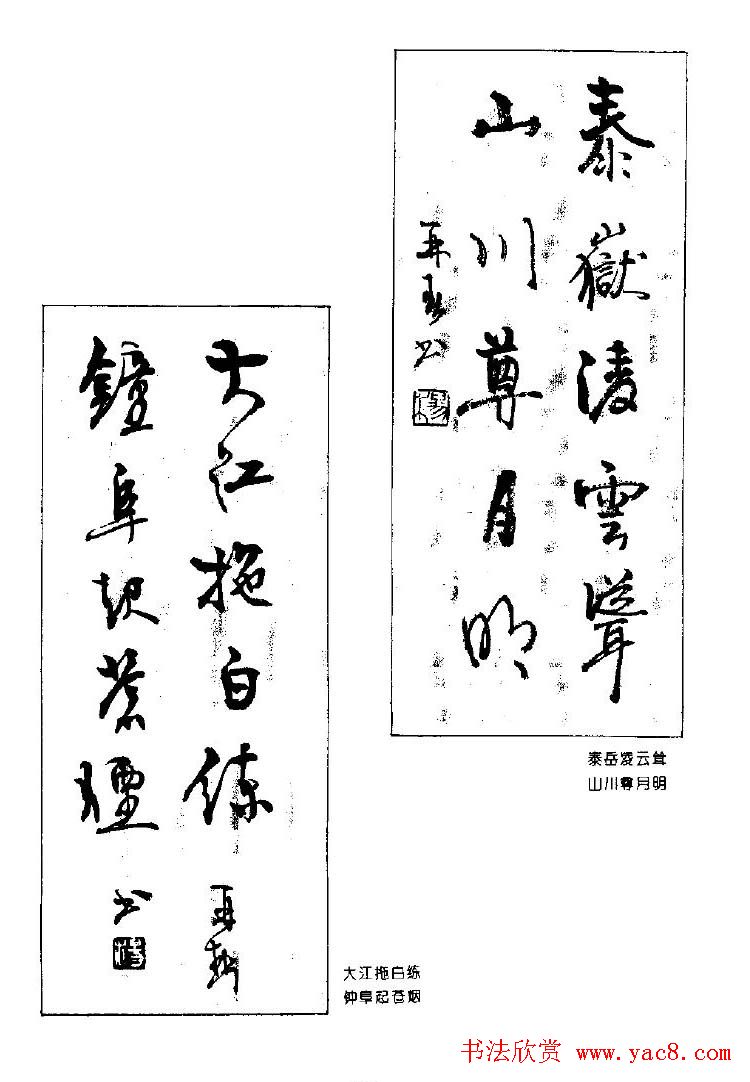 泰嶽淩雲聳
山川尊月明
再春书
泰岳凌云耸
山川尊月明
大江拖白練
鐘阜起蒼煙
书
大江拖白练
钟阜起苍烟
书法欣赏 www.yac8.com